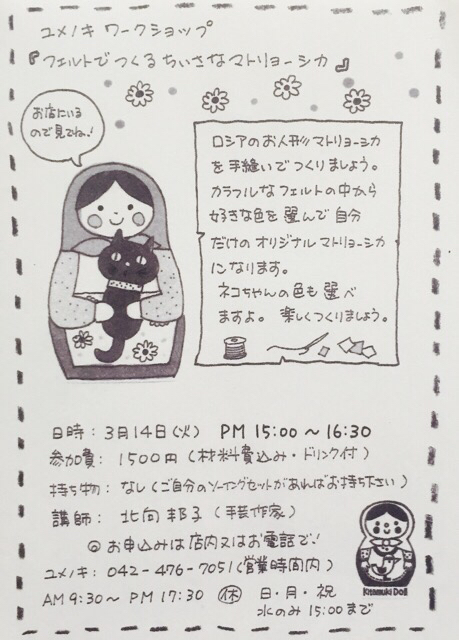 ユメノキ ワークショップ
『フェルトでつくるちいさなマトリョーシカ』
お店にいる
ので見てね!
ロシアのお人形マトリョーシカ
を手縫いでつくりましょう。
カラフルなフェルトの中から
好きな色を選んで自分
だけのオリジナルマトリョーシカ
になります。
ネコちゃんの色も選べ
ますよ。楽しくつくりましょう。
日時:3月14日(火) PM 15:00～16:30
参加費:1500円(材料費込み・ドリンク付)
持ち物:なし(ご自分のソーイングセットがあればお持ち下さい)
講師:北向邦子(手芸作家)
◎お申込みは店内又はお電話で!
ユメノキ:042-476-7051(営業時間内)
AM 9:30～PM 17:30 休 日・月・祝
水のみ 15:00まで
Kitamuki Doll